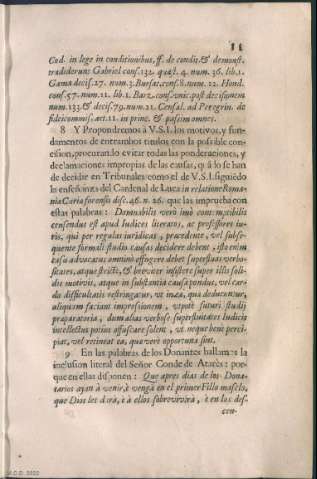 11
Cod. in lege in conditionibus, ff. de condit. & demonst.
tradiderunt Gabriel cons. 132. quæst. 4. num. 36. lib. 1.
Gama decis. 27. num. 3. Bursat. cons. 8. num. 12. Hond.
cons. 57. num. 12. lib. 1. Burz. cons. vnic. post decisionem
num. 133. & decis. 79. num. 21. Censal. ad Peregrin. de
fideicommiss. art. 11. in princ. & passim omnes.
8 Y Propondremos à V.S.I. los motivos, y fun-
damentos de entrambos titulos con la possible con-
cession, procurando evitar todas las ponderaciones, y
declamaciones impropias de las causas, que se han
de decidir en Tribunales como el de V.S.I. siguiẽdo
la enseñanza del Cardenal de Luca in relatione Roma-
næ Curiæ forensis disc. 46. n. 26. que las imprueba con
estas palabras: Damnabilis verò imò contemptibilis
censendus est apud Iudices literatos, ac professores iu-
ris, qui per regulas iuridicas, præcedente, vel subse-
quente formali studio causas decidere debent, isto enim
casu advocatus omnino effugere debet superfluas verbo-
sitates, atque strictè, & breviter insistere super illis soli-
dis motivis, atque in substantia causæ pondus, vel car-
do difficultatis restringatur, vt in ea, quæ deducuntur,
aliquam faciant impressionem, vtpotè futuri studij
præparatoria, dum aliàs verbosæ superfluitates Iudicis
intellectus potius offuscare solent, vt neque bene perci-
piat, vel retineat ea, quæ verè opportuna sint.
9 En las palabras de los Donantes hallamos la
inclusion literal del Señor Conde de Atarès: por-
que en ellas disponen: Que apres dias de los Dona-
tarios ayan à venir, è vengà en el primer Fillo masclo,
que Dios les darà, è à ellos sobrevivirà, è en los des-
cen-